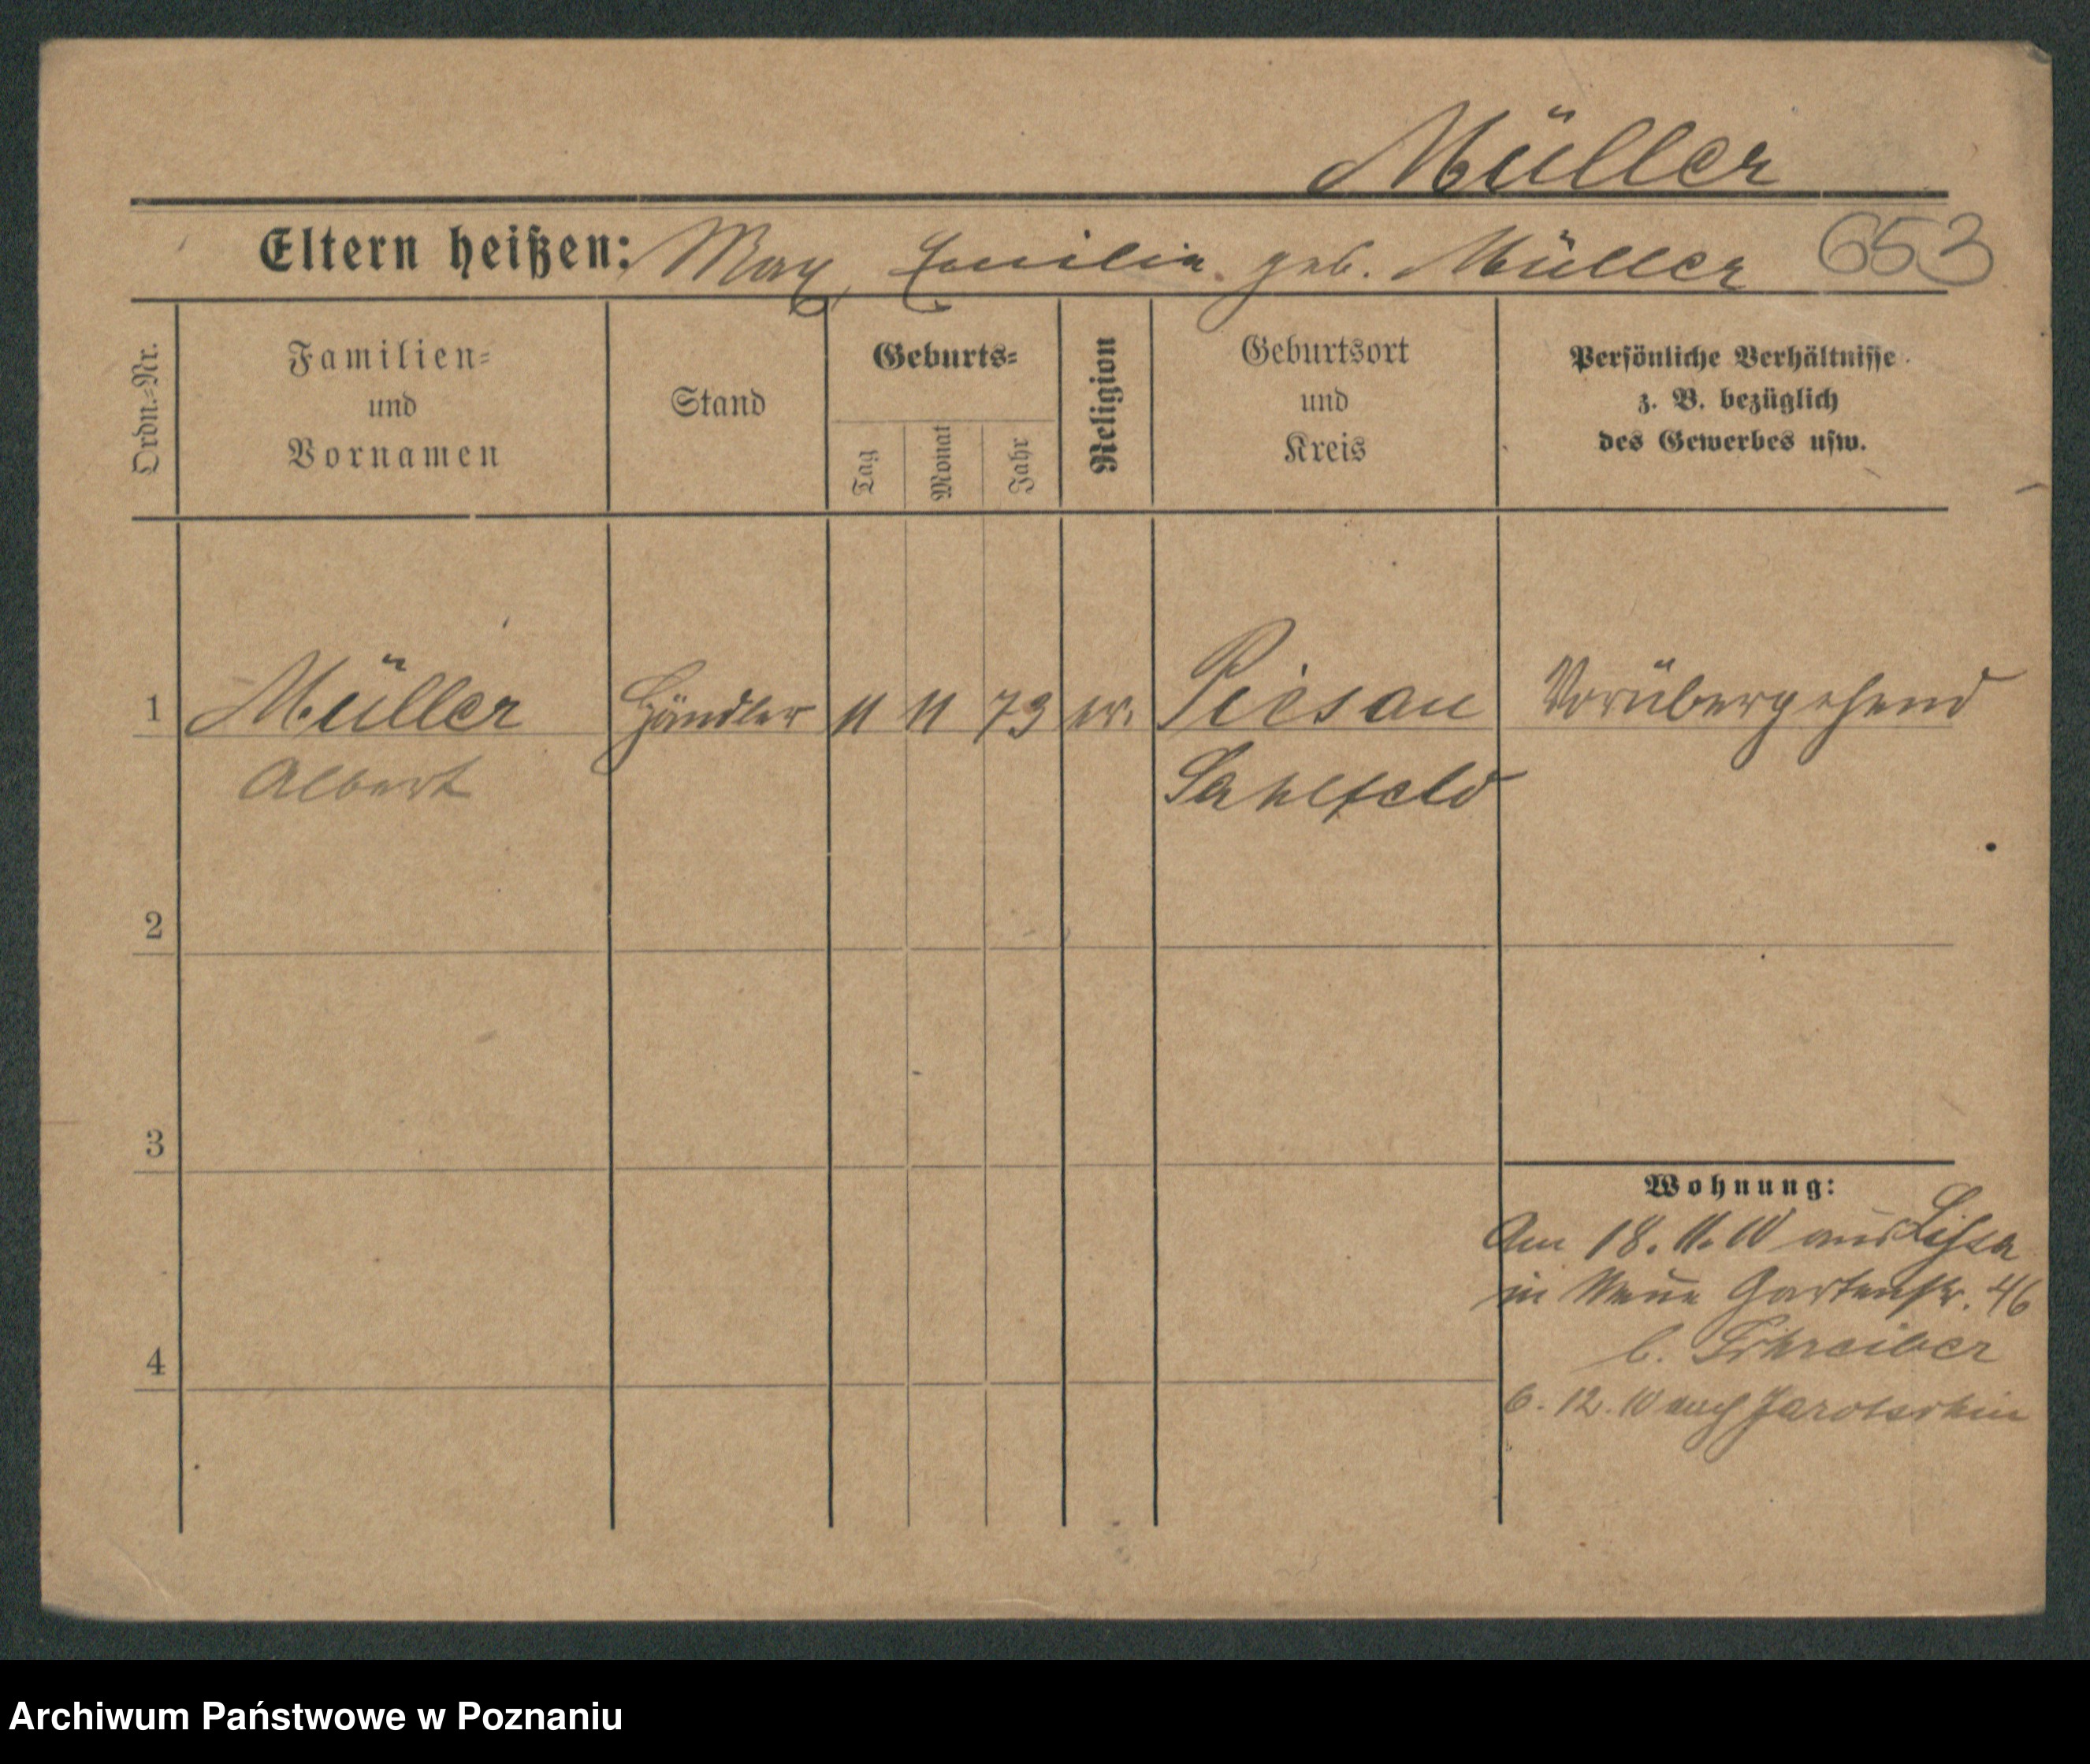 Müller
Eltern heißen: Max, Emilie geb. Müller 653
Ordn.-Nr.
Familien- und Vornamen
Stand
Geburts-
Tag
Monat
Jahr
Religion
Geburtsort und Kreis
Persönliche Verhältnisse z. B. bezüglich des Gewerbes usw.
1 Müller Händler 11 11 73 ev. Piesau Vorübergehend
Albert Sahlfeld
2
3
Wohnung:
Am 18. 11. 10 aus Lissa
in Neue Gartenstr. 46
b. Schreiber
4
6. 12. 10 nach Jarotschin
Archiwum Państwowe w Poznaniu